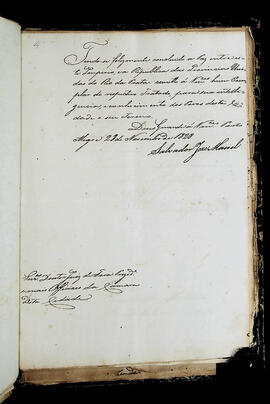 4
Tendo se felizmente concluido a Paz entre es-
te Imperio, ea Republica das Provincias Uni-
das do Rio da Prata remetto á Vm.ces hum Exem-
plar do respectivo Tratado para sua intelli-
gencia, e conhecimento do Povo desta Ci-
dade e seu Termo.
Deos Guarde a Vm.ces Porto
Alegre 29 de Novembro de 1828
Salvador José Maciel
Juiz de Fora
e mais Officiaes da Camara
desta Cidade